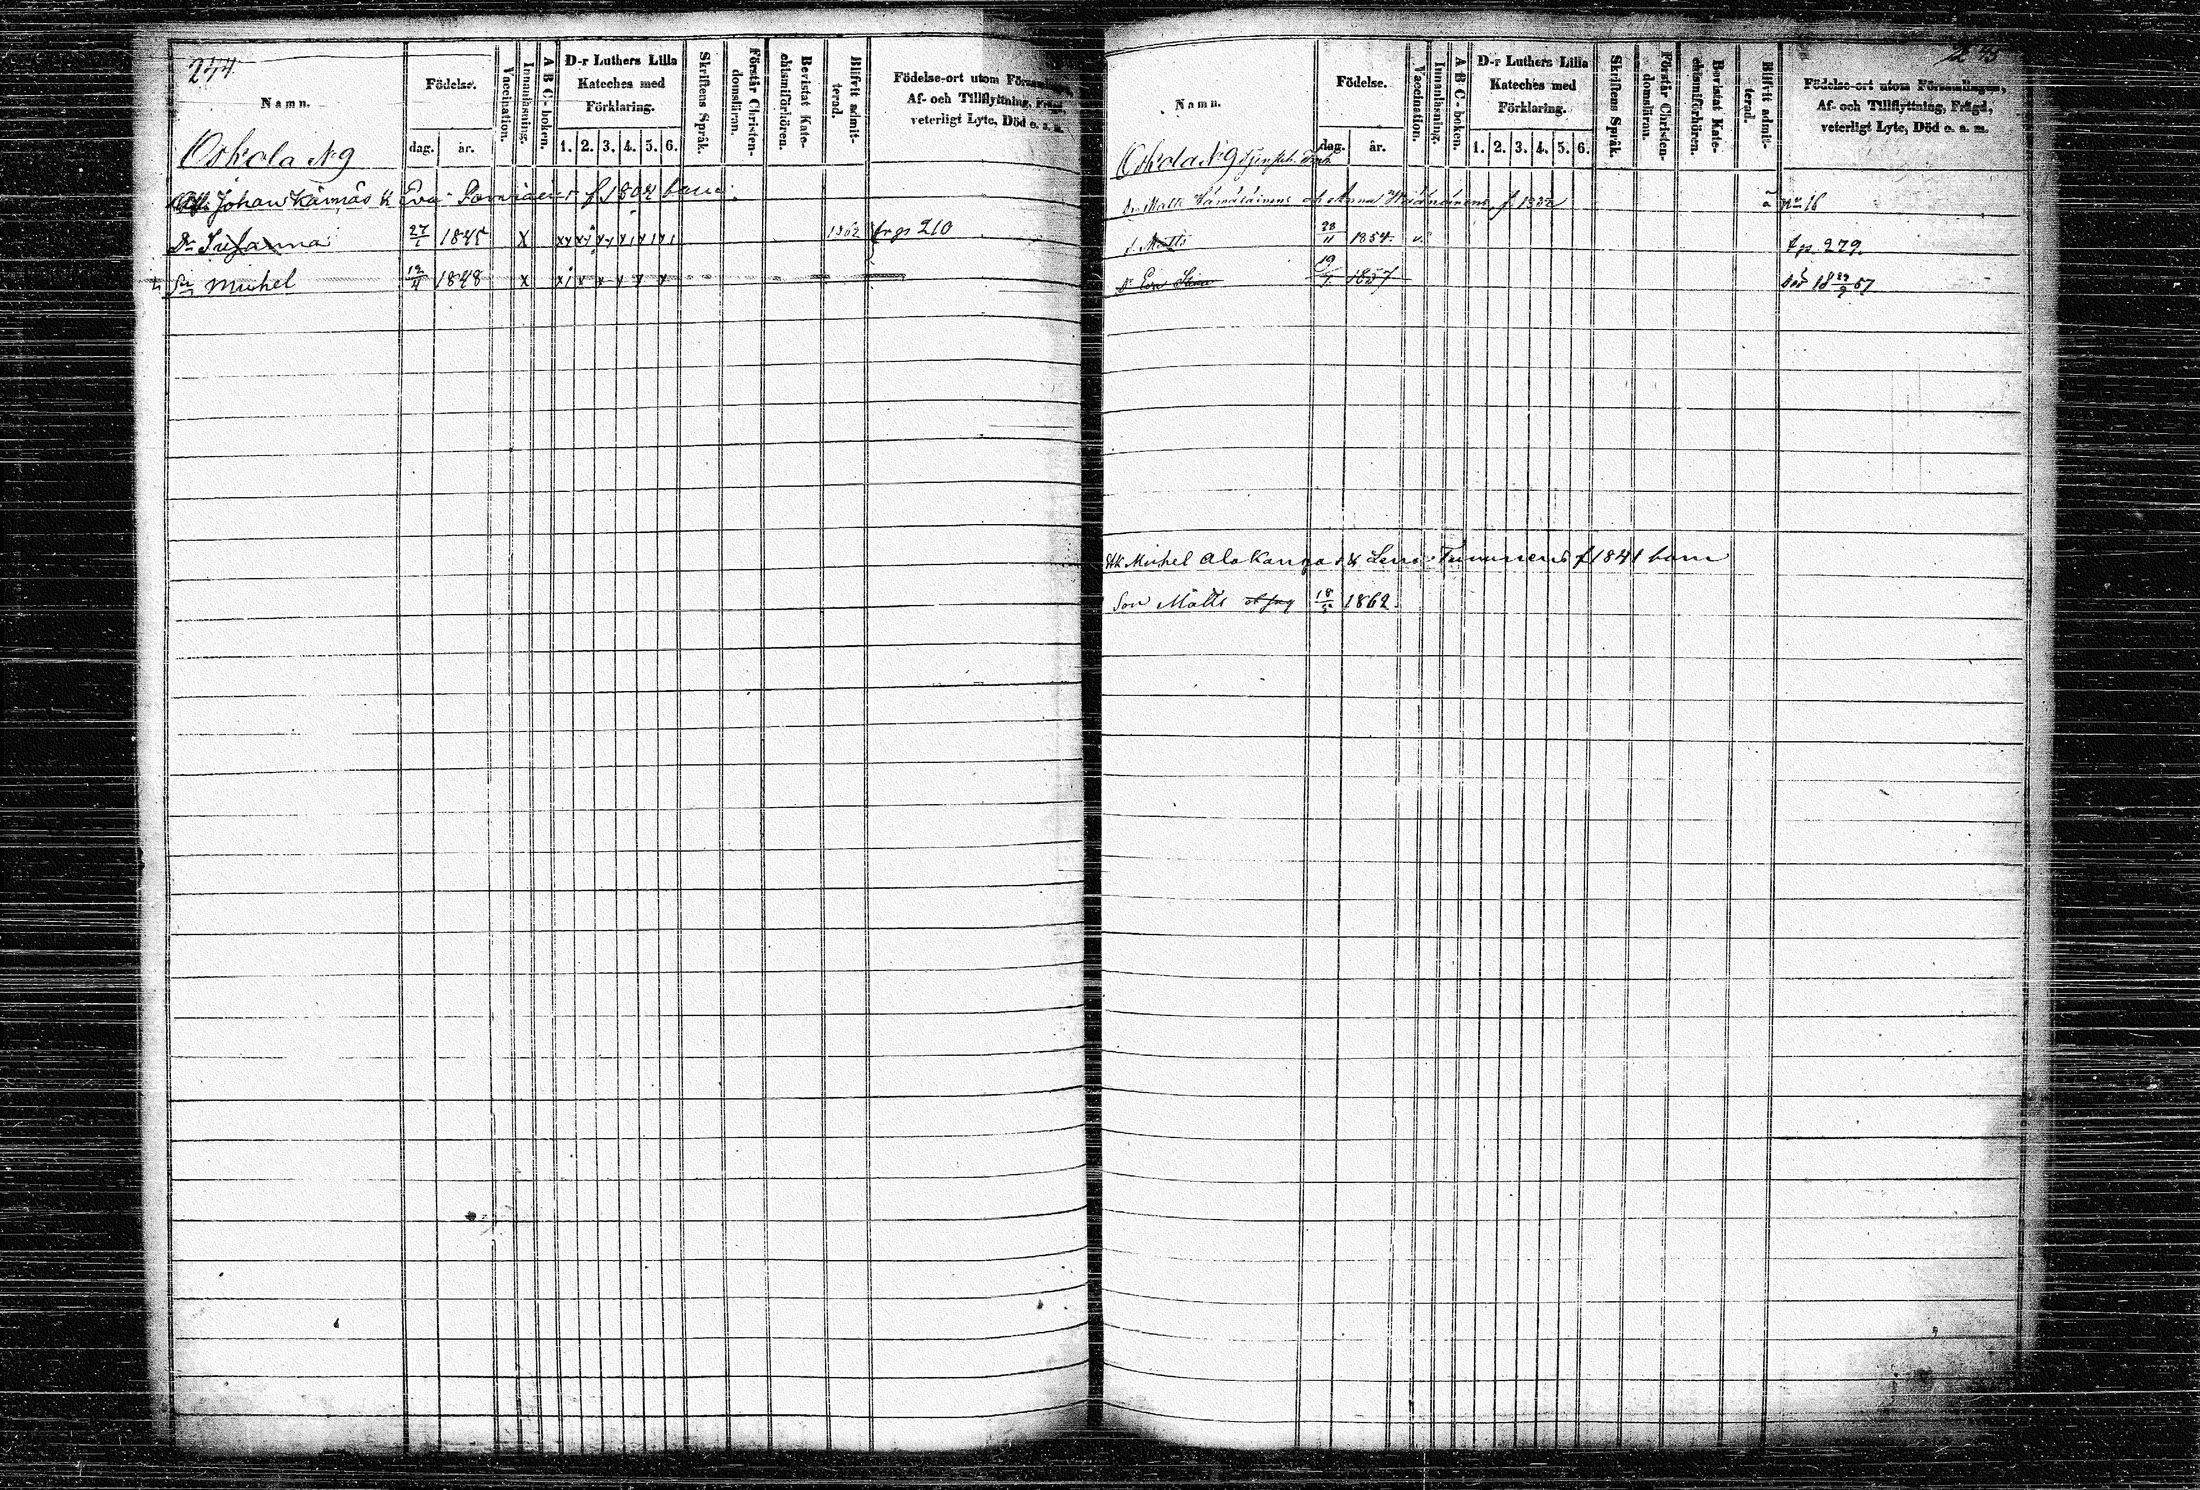 244.
Namn.
Födelse.
dag. år.
Vaccination.
Innanläsning.
A B C-boken.
D-r Luthers Lilla
Kateches med
Förklaring.
1. 2. 3. 4. 5. 6.
Skriftens Språk.
Förstår Christen-
domsläran.
Bevistat Kate-
chismiförhören.
Blifvit admit-
terad.
Födelse-ort utom Församlingen,
Af- och Tillflyttning, Frägd,
veterligt Lyte, Död o. s. m.
Oskola N 9
Johan Kärnäs & Eva f 1804 barn
Dr Susanna 27/1 1845 X 1862 trgs 210
Sn Michel 12/4 1848 x
245
Namn.
Födelse.
dag. år.
Vaccination.
Innanläsning.
A B C-boken.
D-r Luthers Lilla
Kateches med
Förklaring.
1. 2. 3. 4. 5. 6.
Skriftens Språk.
Förstår Christen-
domsläran.
Bevistat Kate-
chismiförhören.
Blifvit admit-
terad.
Födelse-ort utom Församlingen,
Af- och Tillflyttning, Frägd,
veterligt Lyte, Död o. s. m.
Oskola N 9
Matts Hämäläinens och Anna f 1832 No 16
s. Matts 28/11 1854. v. tgs 279.
Dr Eva Stina 19/1 1857 död 18 29/9 57
Michel Alakangas & Lena f 1841 barn
Son Matts 18/5 1862.